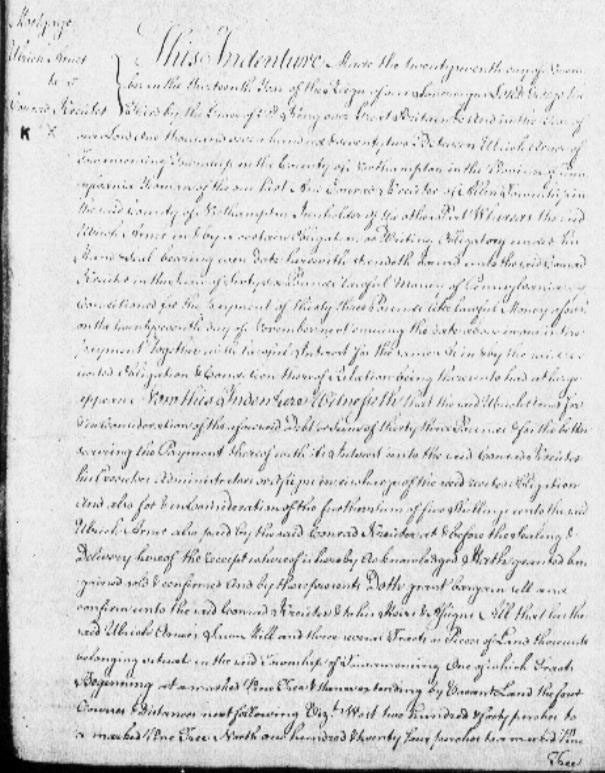 Mortgage
Ulrich Arner
to
Conrad Kreider
K X
This Indenture Made the twentyseventh day of Novem
ber in the thirteenth Year of the Reign of our Sovereign Lord George the
Third by the Grace of God King over Great Britain &c And in the Year of
our Lord one thousand seven hundred & seventy two Between Ulrich Arner of
Township in the County of Northampton in the Province of Penn
sylvania Yeoman of the one Part And Conrad Kreider of Allen Township in
the said County of Northampton Innholder of the other Part Whereas the said
Ulrich Arner in & by a certain Obligation or Writing Obligatory under his
Hand & Seal bearing even date herewith standeth bound unto the said Conrad
Kreider in the Sum of Sixty six Pounds lawful Money of Pennsylvania
Conditioned for the Payment of thirty three Pounds like lawful Money aforesd
on the twentyseventh day of November next ensuing the date above
payment Together with lawful Interest for the same As in & by the said re
cited Obligation & Condition thereof Relation being thereunto had at large
appears Now this Indenture Witnesseth that the said Ulrich Arner for
& in Consideration of the aforesaid Debt or Sum of thirty three Pounds & for the better
securing the Payment thereof with its Interest unto the said Conrad Kreider
his Executors Administrators or Assigns in discharge of the said recited Obligation
And also for & in Consideration of the further Sum of five Shillings unto the said
Ulrich Arner also paid by the said Conrad Kreider at & before the Sealing &
Delivery hereof the Receipt whereof is hereby Acknowledged Hath granted bar
gained sold & confirmed And by these presents Doth grant bargain sell and
confirm unto the said Conrad Kreider & to his Heirs & Assigns All that he the
said Ulrich Arners Mill and three several Tracts or Pieces of Land thereunto
belonging situate in the said Township of One of which Tracts
Beginning at a marked Pine Tree & thence extending by Vacant Land the four
Courses & Distances next following Vizt. West two hundred & forty perches to
a marked Pine Tree North one hundred & twenty four perches to a marked Pine
Tree